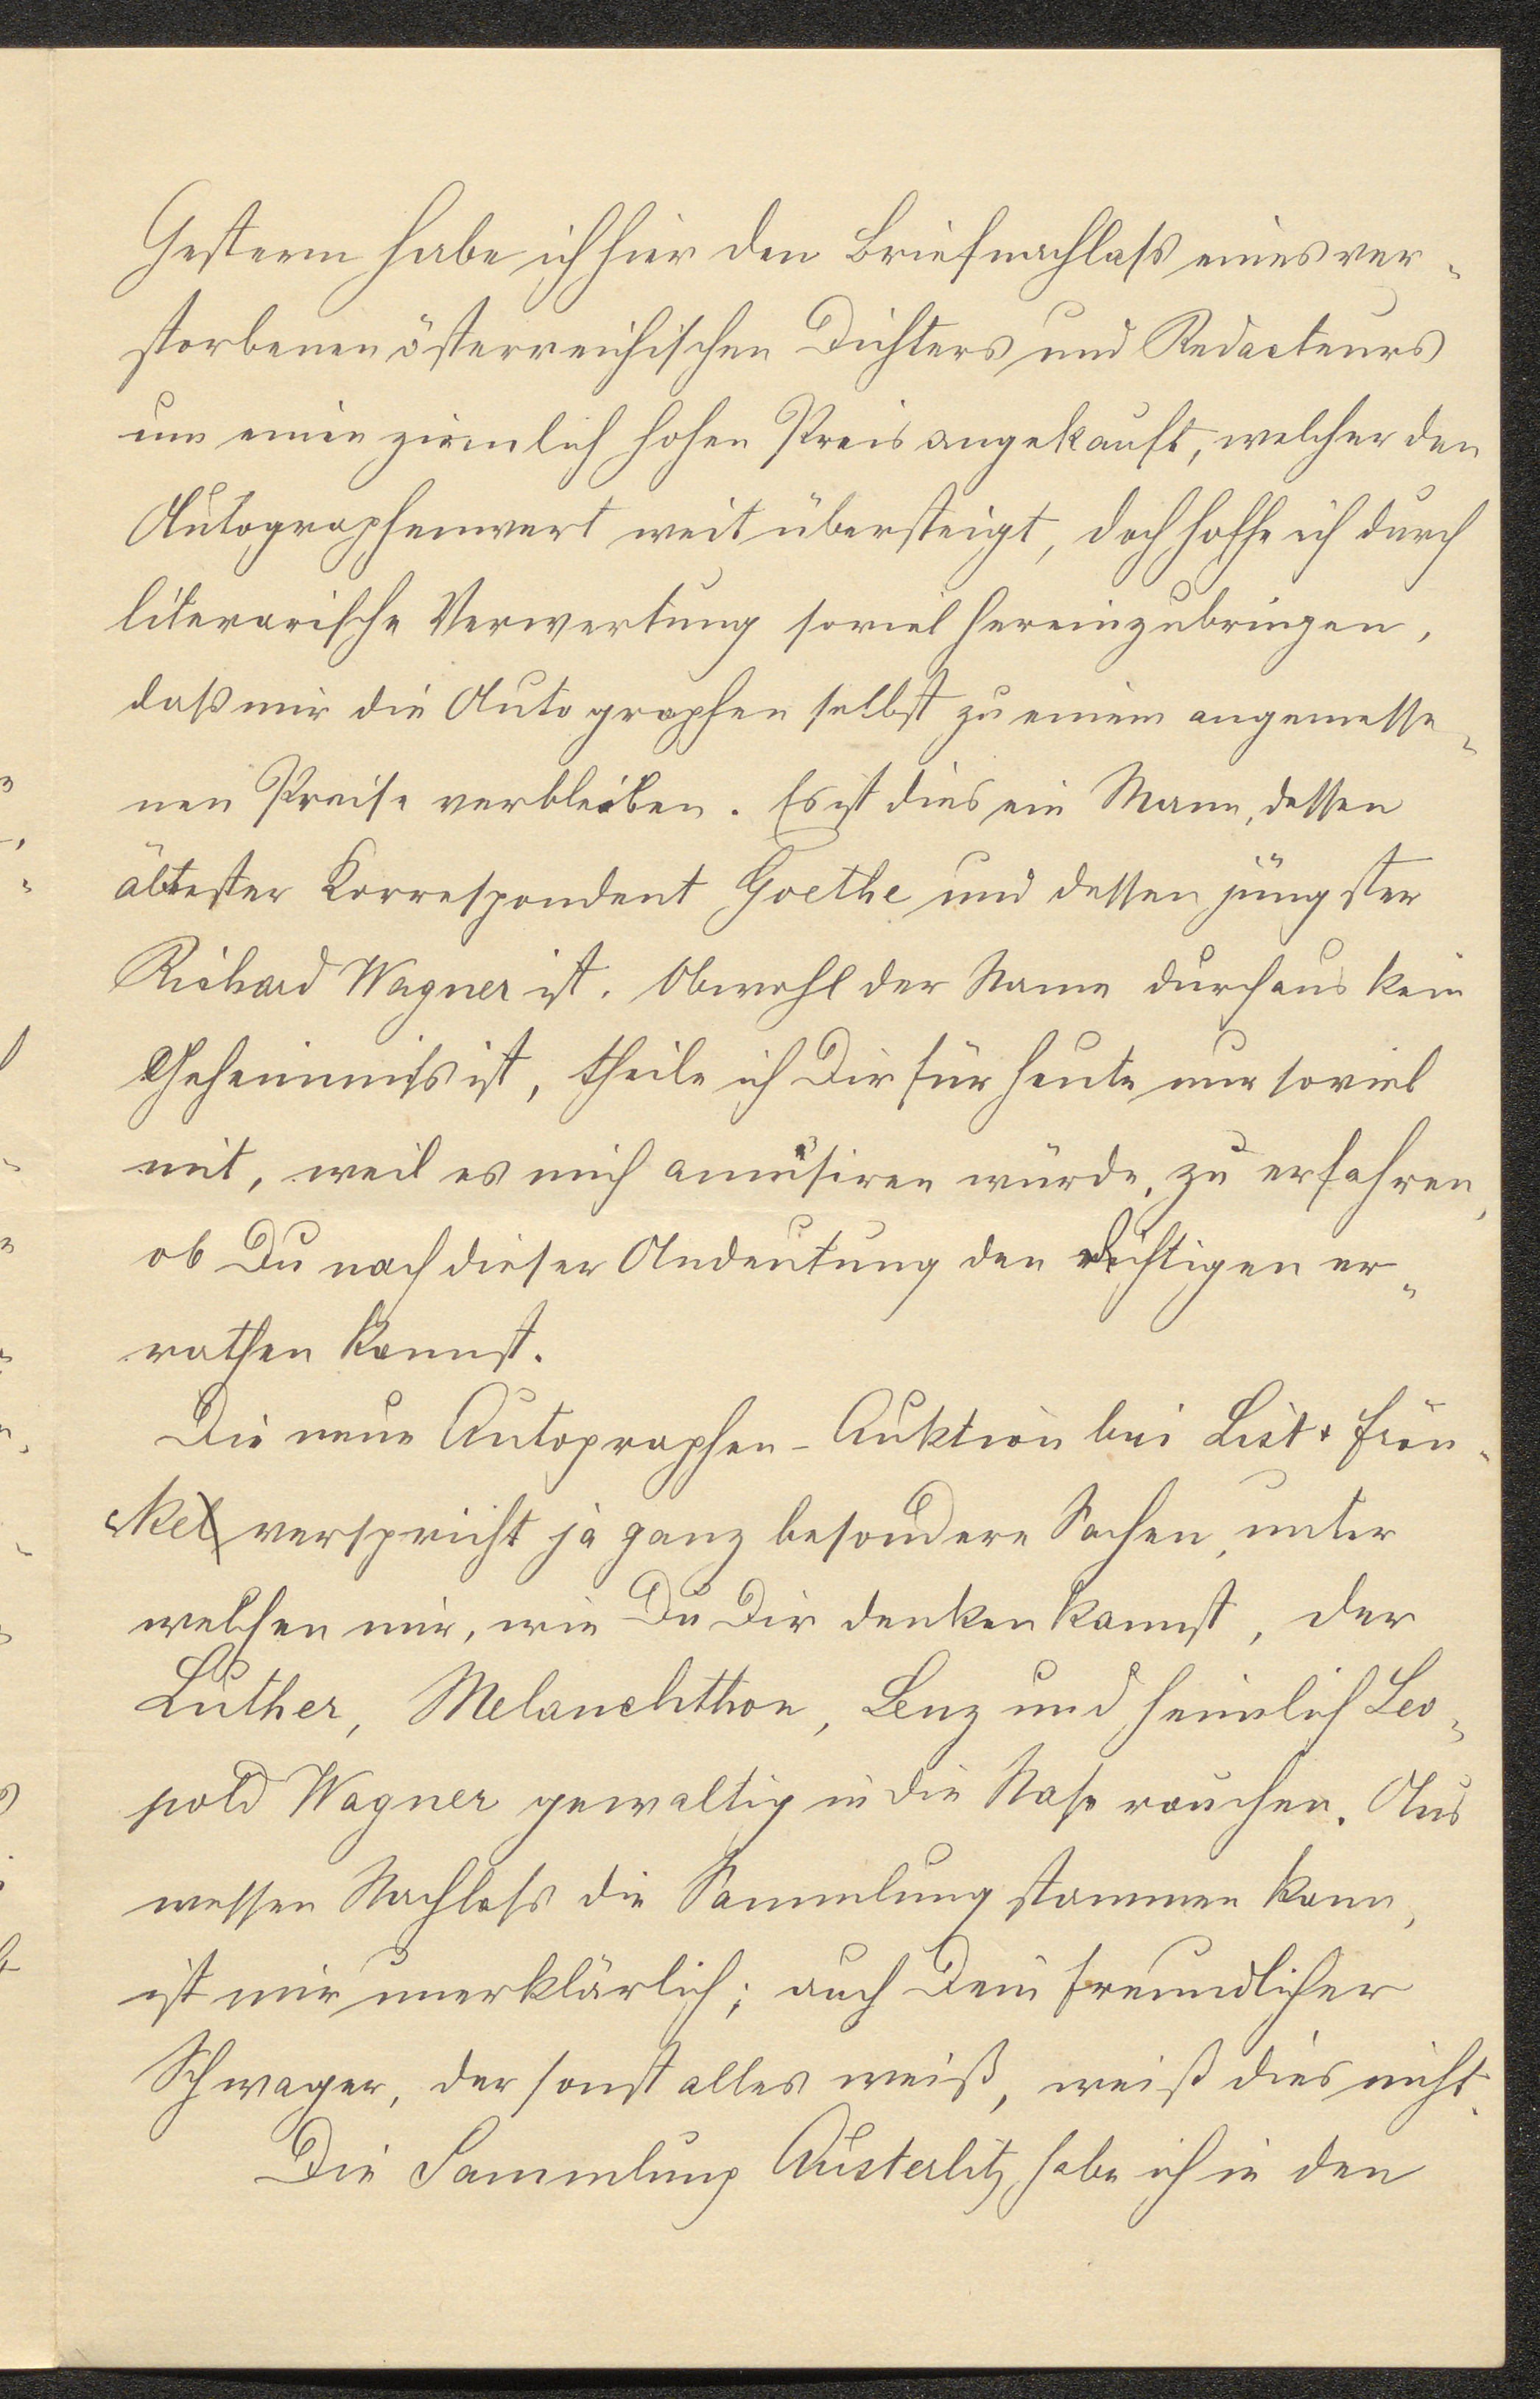 Gestern habe ich hier den Briefnachlass eines ver-
storbenen österreichischen Dichters und Redacteurs
um einen ziemlich hohen Preis angekauft, welcher den
Autographenwert weit übersteigt, doch hoffe ich durch
literarische Verwertung soviel hereinzubringen,
dass mir die Autographen selbst zu einem angemesse-
nen Preise verbleiben. Es ist dies ein Mann, dessen
ältester Korrespondent Goethe und dessen jüngster
Richard Wagner ist. Obwohl der Name durchaus kein
Geheimniss ist, theile ich Dir für heute nur soviel
mit, weil es mich amüsiren würde, zu erfahren,
ob Du nach dieser Andeutung den Richtigen er-
rathen kannst.
Die neue Autographen-Auktion bei List & Fran-
ke verspricht ja ganz besondere Sachen, unter
welchen mir, wie Du Dir denken kannst, der
Luther, Melanchthon, Lenz und Heinrich Leo-
pold Wagner gewaltig in die Nase rauchen. Aus
wessen Nachlass die Sammlung stammen kann,
ist mir unerklärlich; auch Dein freundlicher
Schwager, der sonst alles weiß, weiß dies nicht.
Die Sammlung Austerlitz habe ich in den